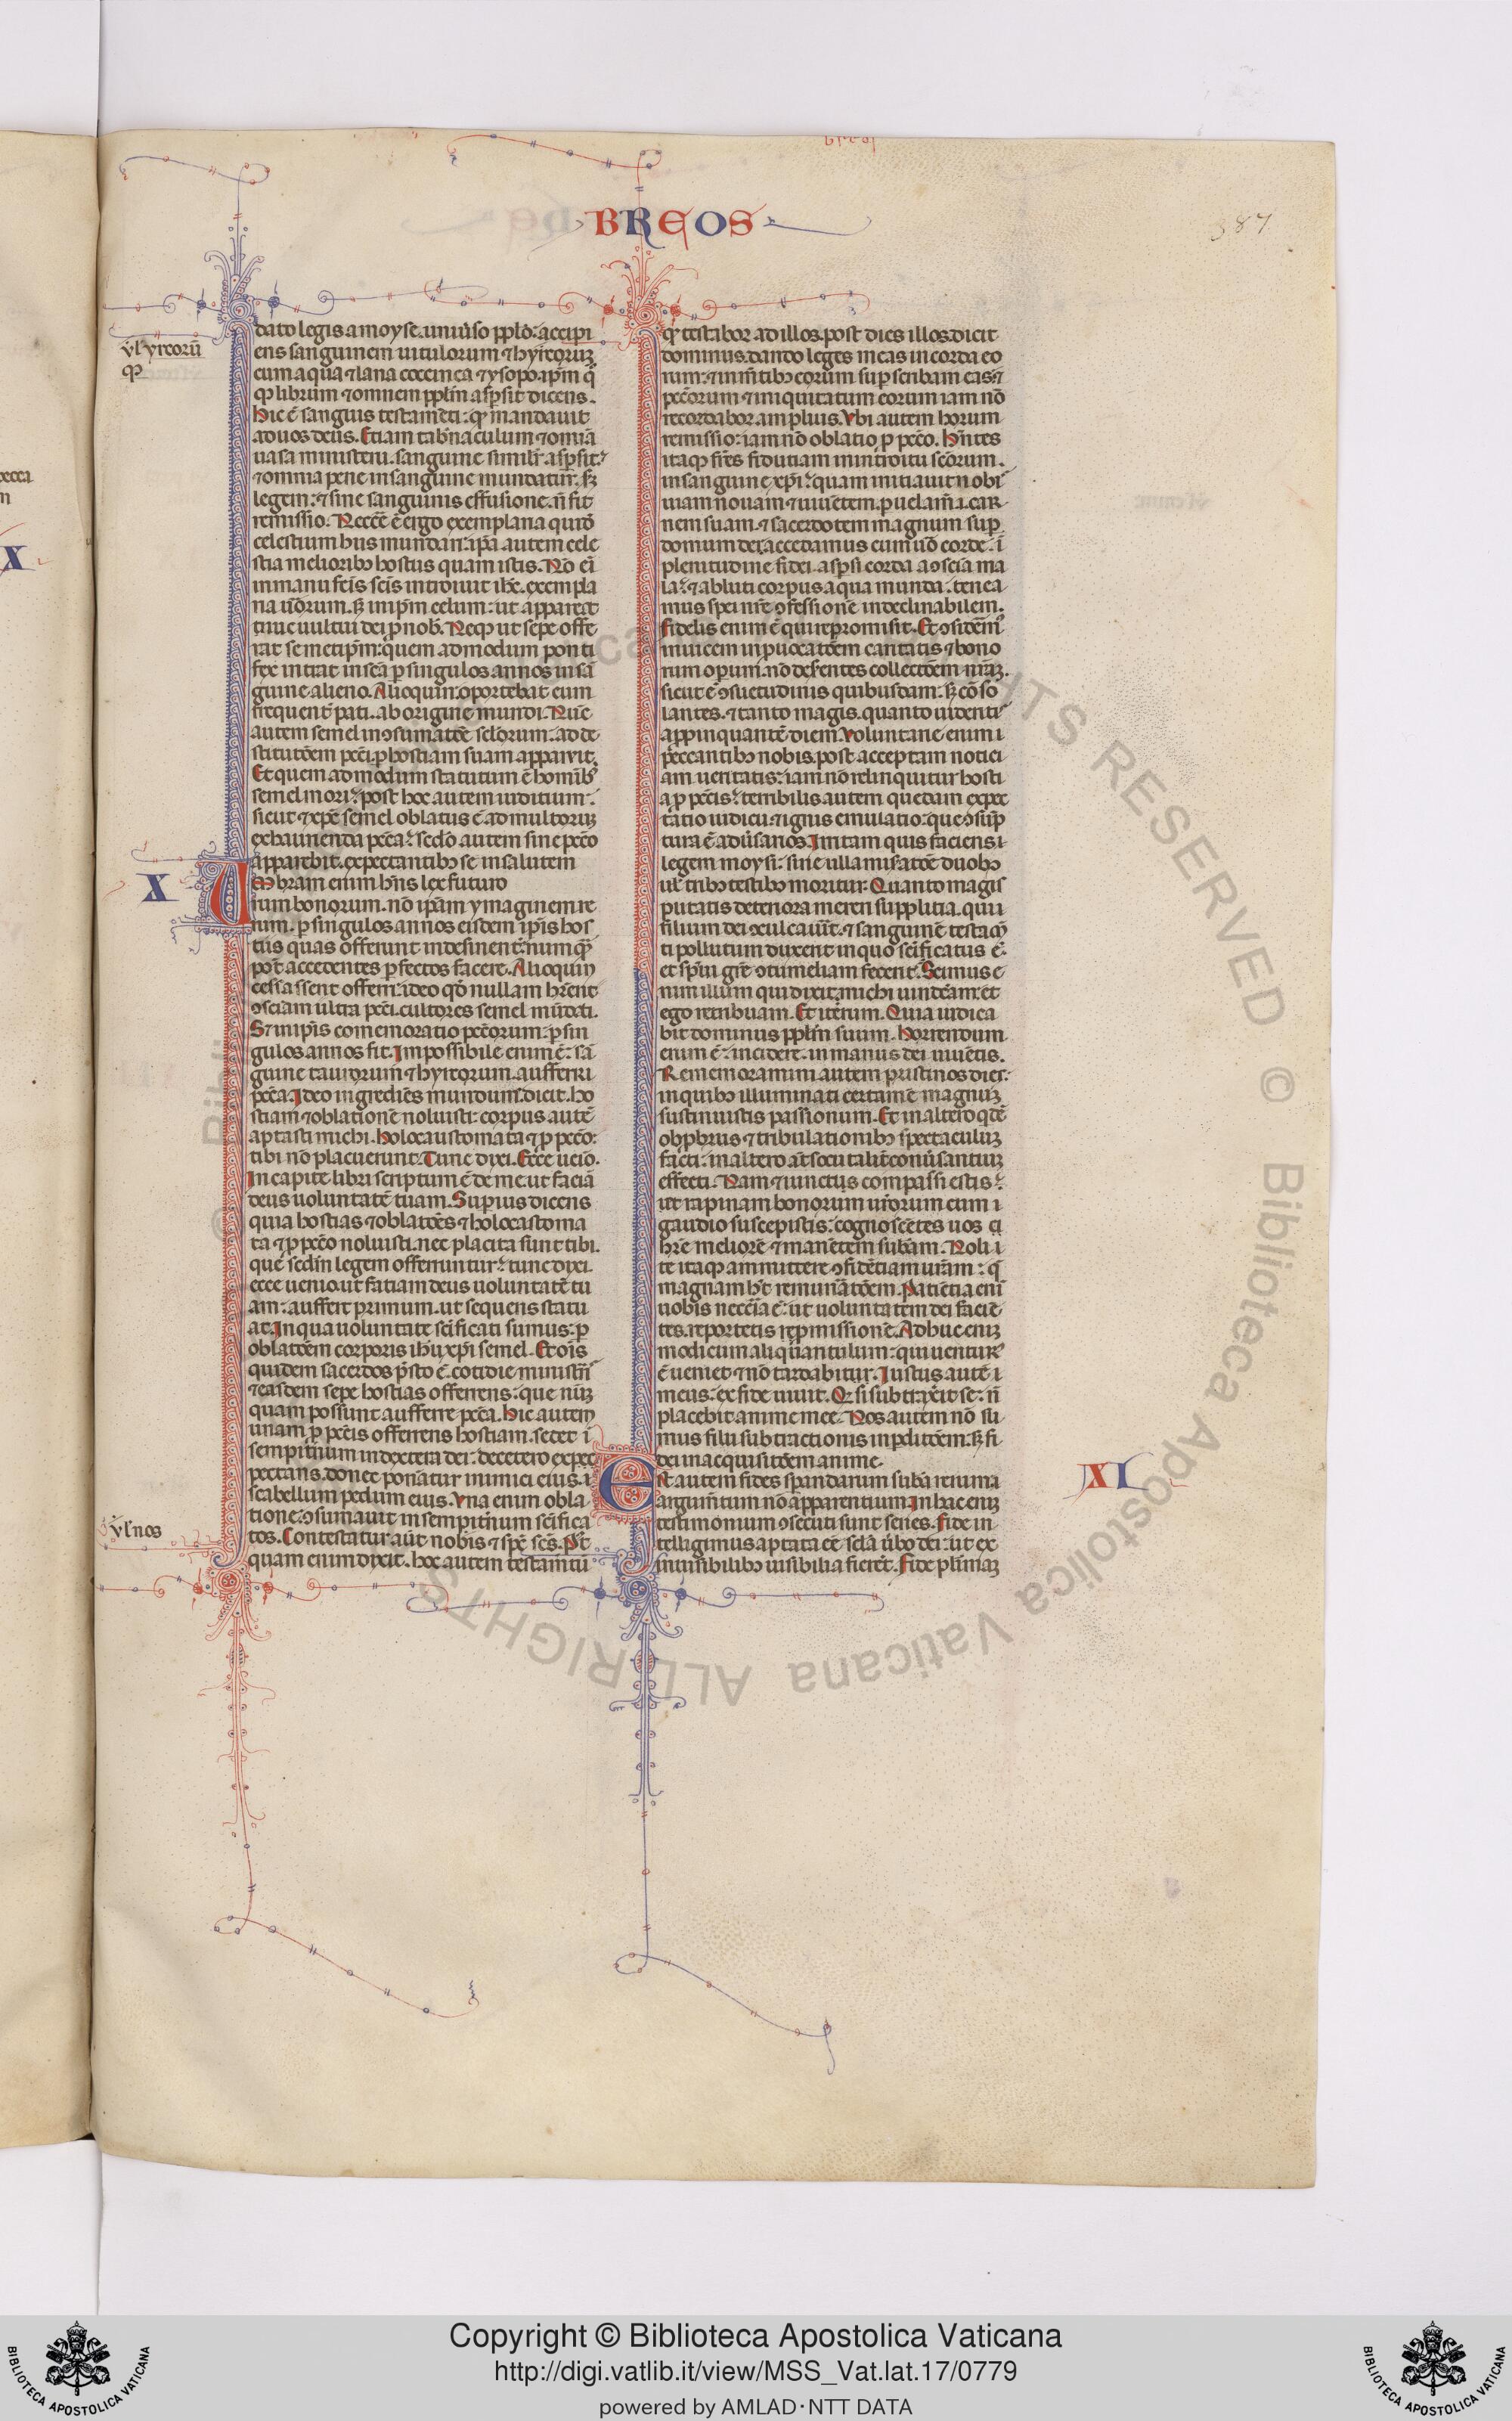 BREOS
387
dato legis a moyse. uniu̾so pp̄lo: accipi
ens sanguinem uitulorum ⁊ hyrcoruꝫ
cum aqua ⁊ lana coccinea ⁊ ysopo. ip̄m q̄
qꝫ librum ⁊ omnem pp̄lm aspsit dicens.
Hic ē sanguis testam̄ti: qď mandauit
ad uos deus. Etiam tab̄naculum ⁊ omīa
uasa ministerii. sanguine simil̓r aspsit:
⁊ omnia pene in sanguine mundātur. sꝫ
legem: ⁊ sine sanguinis effusione. n̄ fit
remissio. Necc̄e ē ergo exemplaria quid̄
celestium hiis mundari: ip̄a autem cele
stia melioribꝫ hostiis quam istis. Nō eī
in manufc̄is sc̄is introiuit ih̄c. exempla
ria ūorum. sꝫ in ip̄m celum: ut appareat
nunc uultui dei p̄ nob̄. Neqꝫ ut sepe offe
rat semetip̄m: quem admodum ponti
fex intrat in sc̄a p singulos annos in sā
guine alieno. Alioquin: oportebat eum
frequent̄ pati. ab origine mundi. Nūc
autem semel in ꝯsūmatōe sclorum: ad de
stitutōem pc̄ti. p hostiam suam apparuit.
Et quem admodum statutum ē homībꝫ
semel mori: post hoc autem iuditium:
sicut ⁊ xp̄c semel oblatus ē ad multoruꝫ
exhaurienda pc̄ca: sc̄do autem sine pc̄co
apparebit. expectantibꝫ se in salutem
X
Umbram enim hn̄s lex futuro
rum bonorum. nō ip̄am ymaginem re
rum. p singulos annos eisdem ip̄is hos
tiis quas offerunt indesinent̄: numqꝫ
pōt accedentes pfectos facere. Alioquin
cessassent offerri: ideo qď nullam hr̄ent
ꝯsciam ultra pc̄ti. cultores semel mūdati.
Sꝫ in ip̄is comemoratio pc̄torum: p sin
gulos annos fit. Impossibile enim ē: sā
guine taurorum ⁊ hyrcorum. aufferri
pc̄ca. Ideo ingrediēs mundum. dicit. ho
stiam ⁊ oblationē noluisti: corpus autē
aptasti michi. Holocaustomata ⁊ p pc̄co:
tibi nō placuerunt. Tunc dixi. Ecce uēio.
In capite libri scriptum ē de me. ut faciā
deus uoluntatē tuam. Superius dicens
quia hostias ⁊ oblatōes ⁊ holocastoma
ta ⁊ p pc̄co noluisti. nec placita sunt tibi.
que sc̄dm legem offerruntur: tunc dixi.
ecce uenio. ut fatiam deus uoluntatē tu
am: auffert primum. ut sequens statu
at. In qua uoluntate sc̄ificati sumus: p
oblatōem corporis ih̄u xp̄i semel. Et oīs
quidem sacerdos p̄sto ē. cotidie ministrās
⁊ easdem sepe hostias offerrens: que nūꝫ
quam possunt aufferre pc̄ca. Hic autem
unam p pc̄tis offerrens hostiam. sedet ī
sempit̄num in dextera dei: de cetero expec
pectans. donec ponātur inimici eius. ī
scabellum pedum eius. Vna enim obla
tione: ꝯsūmauit in sempit̄num sc̄ifica
tos. Contestatur aūt nobis ⁊ spc̄ sc̄s. Post
quam enim dixit. hoc autem testam̄tū
ul̓ yrcorū
qꝫ
ul̓ nos
qď testabor ad illos. post dies illos. dicit
dominus. dando leges meas in corda eo
rum: ⁊ in mētibꝫ eorum supscribam eas: ⁊
pc̄torum ⁊ iniquitatum eorum iam nō
recordabor amplius. Vbi autem horum
remissio: iam nō oblatio p pc̄co. Hn̄tes
itaqꝫ frēs fidutiam in introitu sc̄orum.
in sanguine xp̄i: quam initiauit nobis
uiam nouam ⁊ uiuētem. p uelam̄. i. car
nem suam. ⁊ sacerdotem magnum sup
domum dei: accedamus cum ūo corde. ī
plenitudine fidei. aspsi corda a ꝯscīa ma
la: ⁊ abluti corpus aqua munda. tenea
mus spei nr̄e ꝯfessionē indeclinabilem.
fidelis enim ē qui repromisit. Et ꝯsidem̾
inuicem in puocatōem caritatis ⁊ bono
rum operum. nō deserentes collectōem nr̄aꝫ.
sicut ē ꝯsuetudinis quibusdam: sꝫ cōso
lantes. ⁊ tanto magis. quanto uiderit̾
appinquantē diem. Voluntarie enim
peccantibꝫ nobis. post acceptam notici
am ueritatis: iam nō relinquitur hosti
a p pc̄tis: terribilis autem quedam expec
tatio iudicii: ⁊ ignis emulatio: que ꝯsūp
tura ē adūsarios. Irritam quis faciens
legem moysi: sine ulla mis̄atōe duobꝫ
ul̓ tribꝫ testibꝫ moritur. Quanto magis
putatis deteriora mereri supplitia. qui
filium dei ꝯculcauīt. ⁊ sanguinē testam̄
ti pollutum duxerit in quo sc̄ificatus ē:
et sp̄ui gr̄e ꝯtumeliam fecerit. Scimus e
nim illum qui dixit. michi uindc̄am: et
ego retribuam. Et iterum. Quia iudica
bit dominus pp̄lm suum. Horrendum
enim ē: incidere. in manus dei uiuētis.
Rememoramini autem pristinos dies:
in quibꝫ illuminati certamē magnuꝫ
sustinuistis passionum. Et in altero qdē
obpbriis ⁊ tribulationibꝫ spectaculuꝫ
facti: in altero aūt socii talit̄ conūsantiuꝫ
effecti. Nam ⁊ uinctus compassi estis:
ut rapinam bonorum ur̄orum cum
gaudio suscepistis: cognoscētes uos
hr̄e meliorē ⁊ manētem sub̄am. Noli
te itaqꝫ ammittere ꝯfidētiam ur̄am: q̄
magnam hēt remun̄atōem. Patiētia enī
uobis necc̄ia ē: ut uoluntatem dei faciē
tes. reportetis repmissionē. Adhuc eniꝫ
modicum aliquantulum: qui uenturꝰ
ē ueniet ⁊ nō tardabitur. Iustus autē
meus: ex fide uiuit. Qď si subtraxerit se: n̄
placebit anime mee. Nos autem nō su
mus filii subtractionis in pditōem. sꝫ fi
dei in acquisitōem anime.
XI
Est autem fides sperandarum sub̄a rerum
argum̄tum nō apparentium. In hac eniꝫ
testimonium ꝯsecuti sunt senes. Fide in
telligimus aptata eē scl̄a ūbo dei: ut ex
inuisibilibꝫ uisibilia fierēt. Fide plurimaꝫ
X
Copyright © Biblioteca Apostolica Vaticana
http://digi.vatlib.it/view/MSS_Vat.lat.17/0779
powered by AMLAD·NTT DATA
BIBLIOTECA APOSTOLICA VATICANA
BIBLIOTECA APOSTOLICA VATICANA